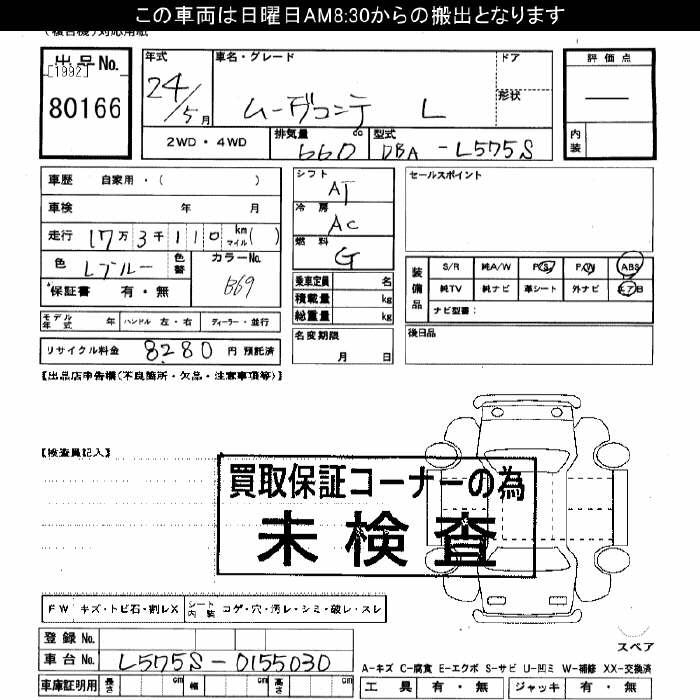 この車両は日曜日AM8:30からの搬出となります
(複合機)対応用紙
出品No.
[1992]
80166
年式
24/5月
車名・グレード
ムーヴコンテ L
ドア
形状
評価点
内装
2WD・4WD
排気量 660 cc
型式 DBA-L575S
車歴 自家用・( )
車検 年 月
走行 17万3千110 km マイル( )
色 Lブルー
色替
カラーNo. B69
保証書 有・無
シフト AT
冷房 AC
燃料 G
乗車定員 名
積載量 kg
総重量 kg
名変期限
月 日
セールスポイント
装備品
S/R 純A/W P/S P/W ABS
純TV 純ナビ 革シート 外ナビ エアB
ナビ型番:
後日品
モデル年式 年 ハンドル 左・右 ディーラー・並行
リサイクル料金 8280 円 預託済
【出品店申告欄(不良箇所・欠品・注意事項等)】
【検査員記入】
買取保証コーナーの為
未検査
FW キズ・トビ石・割レX シート内装 コゲ・穴・汚レ・シミ・破レ・スレ
登録No.
車台No. L575S-0155030
車庫証明用 長さ cm 幅 cm 高さ cm
スペア
A-キズ C-腐食 E-エクボ S-サビ U-凹ミ W-補修 XX-交換済
工具 有・無 ジャッキ 有・無